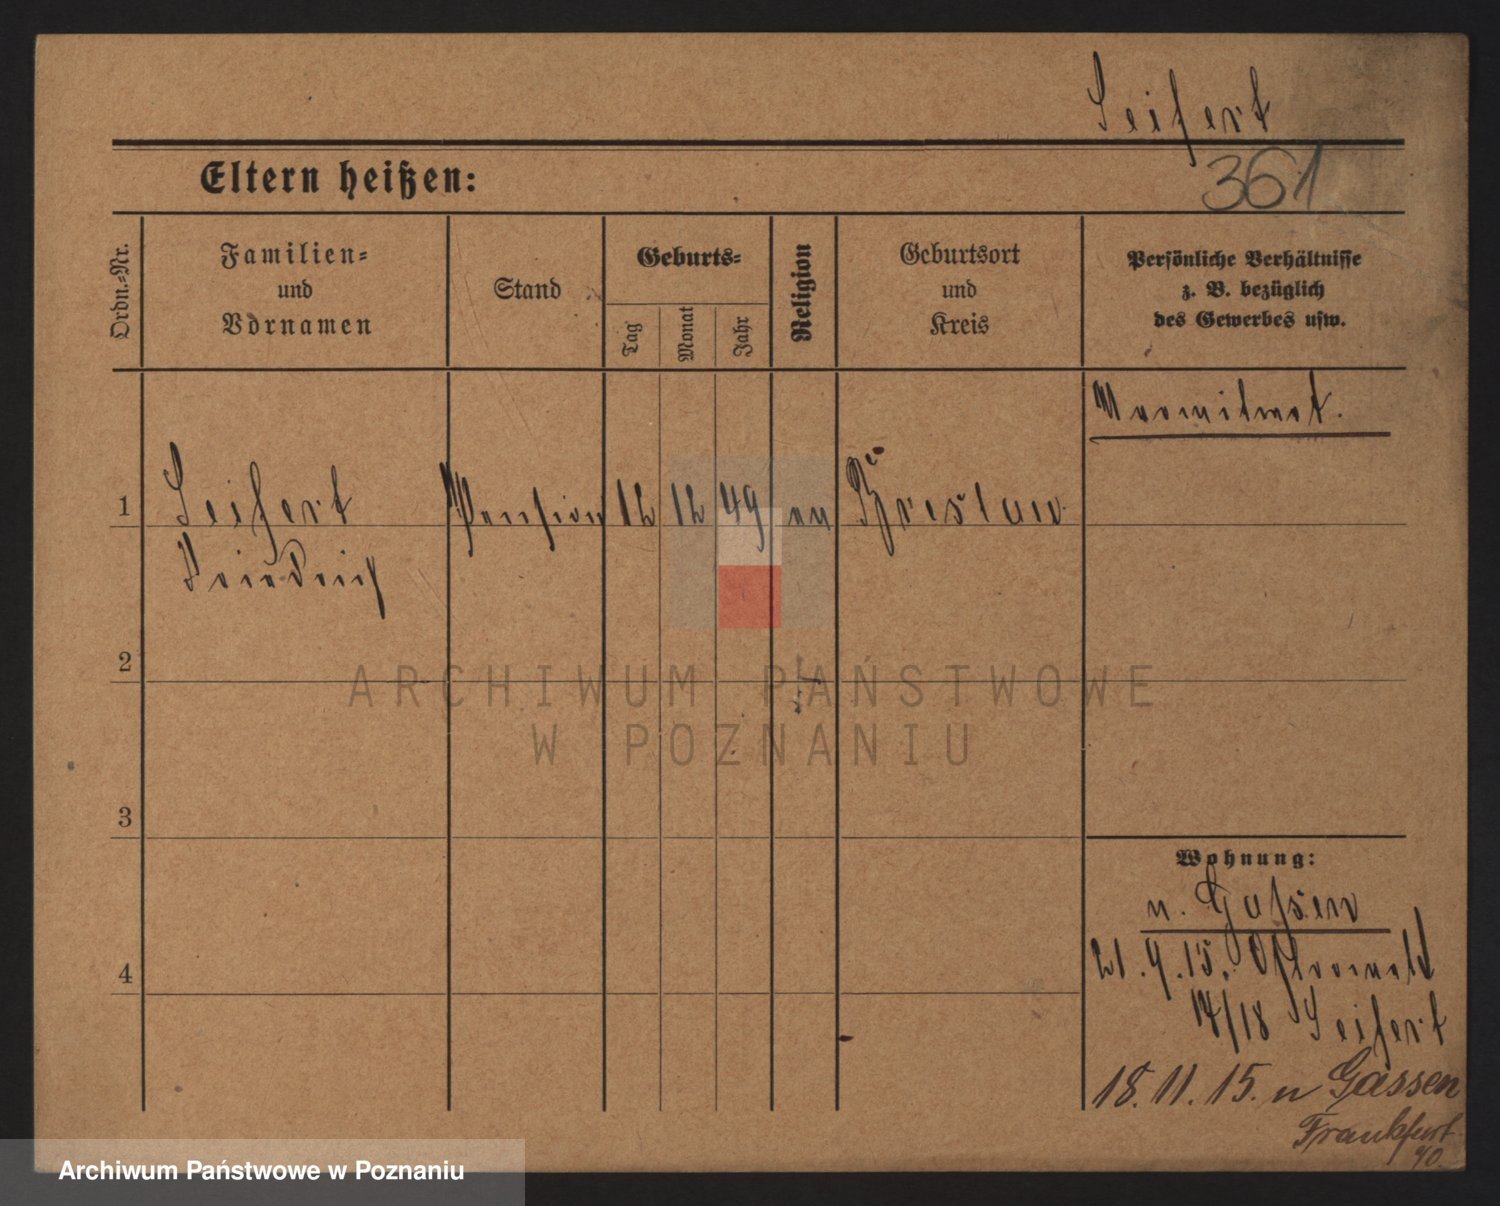 Seifert
361
Eltern heißen:
Ordn.-Nr.
Familien-
und
Vornamen
Stand
Geburts-
Tag
Monat
Jahr
Religion
Geburtsort
und
Kreis
Persönliche Verhältnisse
z. B. bezüglich
des Gewerbes usw.
1
Seifert
Friedrich
12
12
49
ev
Breslau
2
3
4
Wohnung:
n. Gassen
21.9.15.
14/18 Seifert
18.11.15. n Gassen
Frankfurt
ARCHIWUM PAŃSTWOWE
W POZNANIU
Archiwum Państwowe w Poznaniu